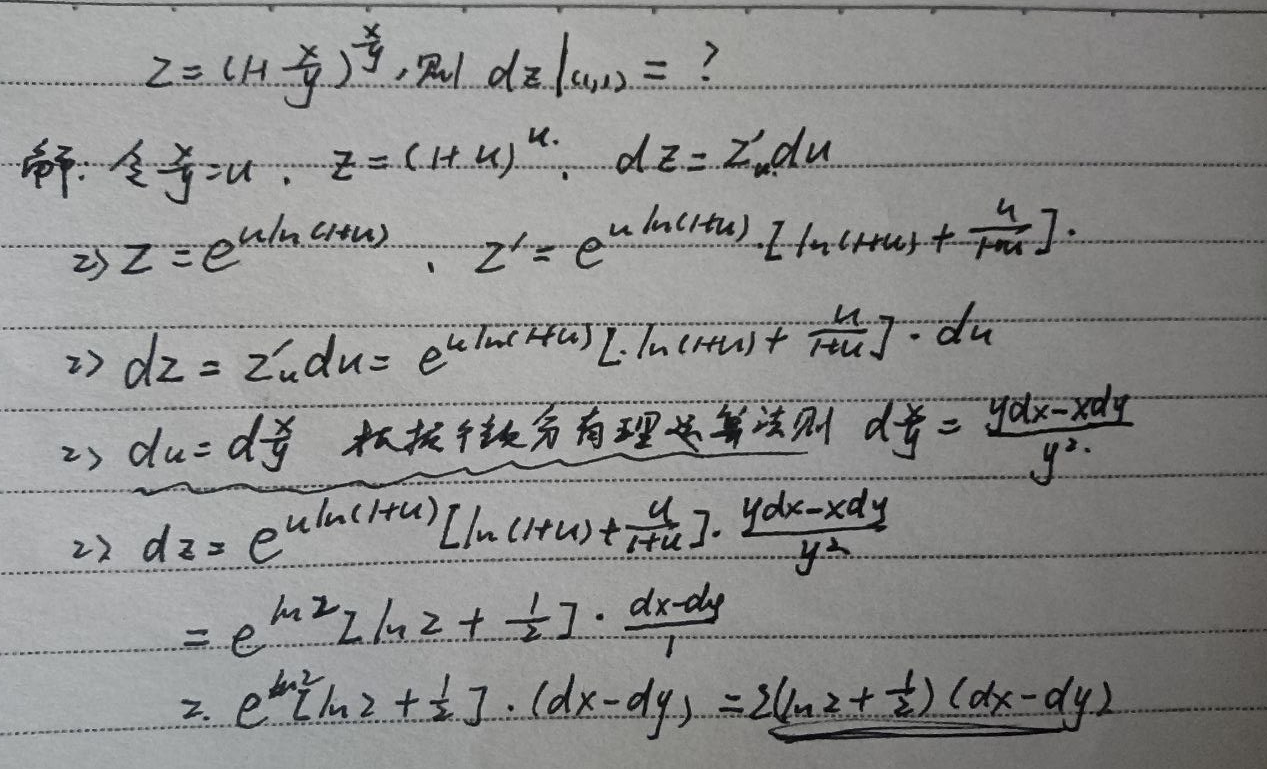 z=(1+x/y)^(x/y), 则 dz|(1,1) = ?
解: 令 x/y=u, z=(1+u)^u. dz=z'_u du
=> z=e^(uln(1+u)), z'=e^(uln(1+u))·[ln(1+u)+u/(1+u)].
=> dz=z'_u du=e^(uln(1+u))[ln(1+u)+u/(1+u)]·du
=> du=d(x/y) 根据微分有理运算法则 d(x/y)=(ydx-xdy)/y².
=> dz=e^(uln(1+u))[ln(1+u)+u/(1+u)]·(ydx-xdy)/y²
=e^(ln2)[ln2+1/2]·(dx-dy)/1
=e^(ln2)[ln2+1/2]·(dx-dy)=2(ln2+1/2)(dx-dy)